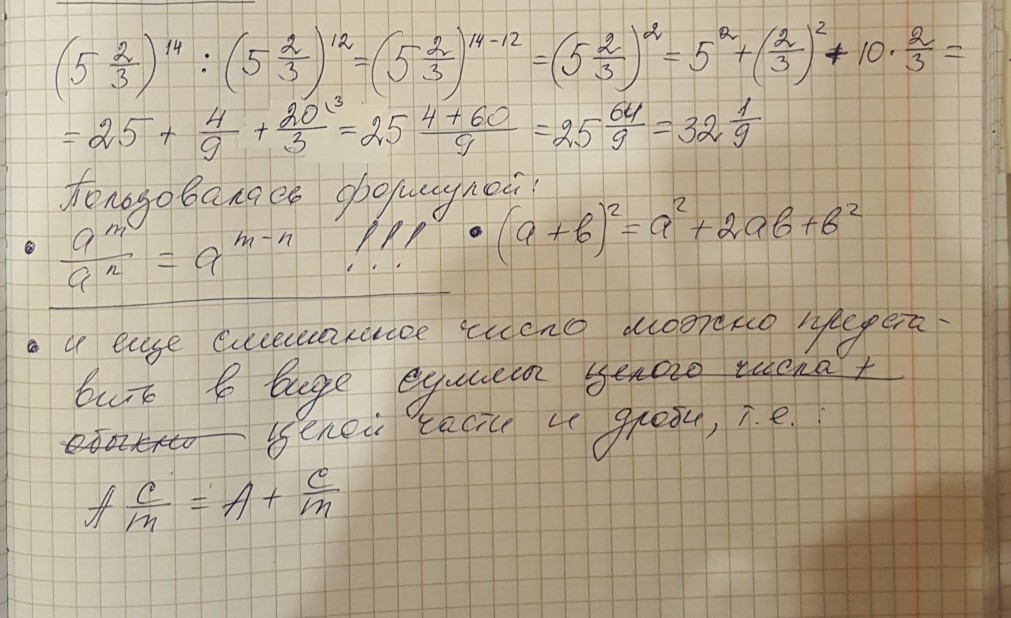 (5 2/3)^14 : (5 2/3)^12 = (5 2/3)^14-12 = (5 2/3)^2 = 5^2 + (2/3)^2 + 10 · 2/3 =
= 25 + 4/9 + 20\3/3 = 25 4+60/9 = 25 64/9 = 32 1/9
Пользовалась формулой:
• a^m/a^n = a^m-n !!! • (a+в)^2 = a^2 + 2aв + в^2
• и еще смешанное число можно предста-
вить в виде суммы целого числа +
обыкно целой части и дроби, т.е.:
A c/m = A + c/m